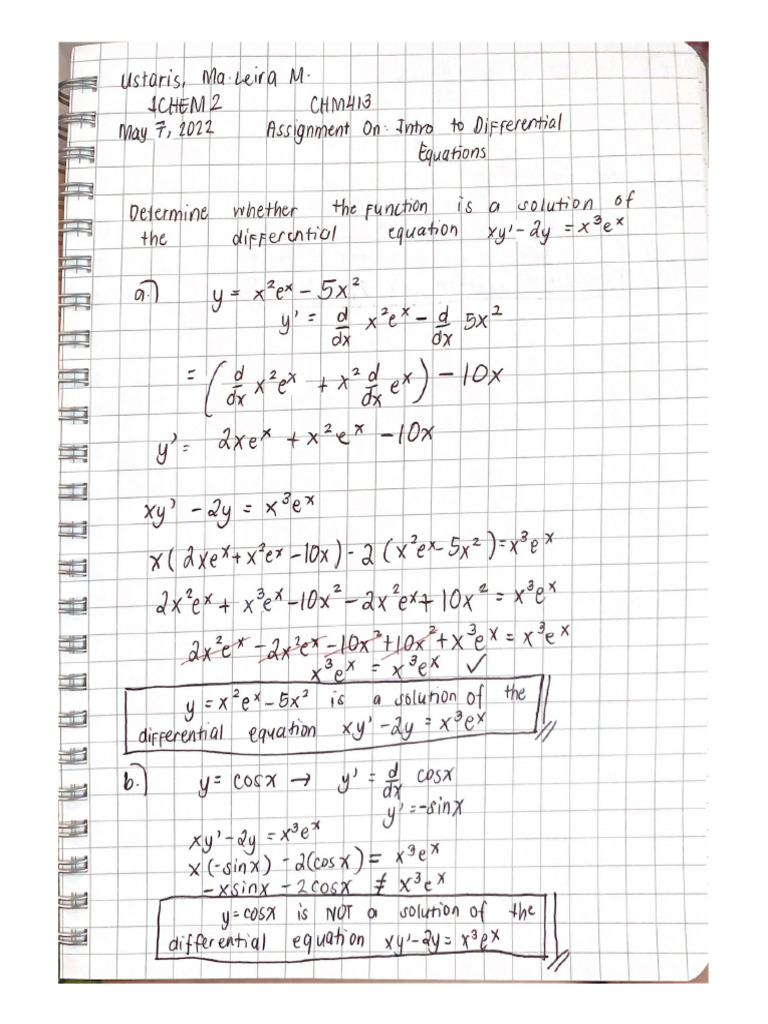 Ustaris, Ma. Leira M.
1CHEM2 CHM413
May 7, 2022 Assignment On: Intro to Differential
Equations
Determine whether the function is a solution of
the differential equation xy' - 2y = x³eˣ
a.) y = x²eˣ - 5x²
y' = d/dx x²eˣ - d/dx 5x²
= (d/dx x²eˣ + x² d/dx eˣ) - 10x
y' = 2xeˣ + x²eˣ - 10x
xy' - 2y = x³eˣ
x(2xeˣ + x²eˣ - 10x) - 2(x²eˣ - 5x²) = x³eˣ
2x²eˣ + x³eˣ - 10x² - 2x²eˣ + 10x² = x³eˣ
2x²eˣ - 2x²eˣ - 10x² + 10x² + x³eˣ = x³eˣ
x³eˣ = x³eˣ ✓
y = x²eˣ - 5x² is a solution of the
differential equation xy' - 2y = x³eˣ
b.) y = cosx → y' = d/dx cosx
y' = -sinx
xy' - 2y = x³eˣ
x(-sinx) - 2(cosx) = x³eˣ
-xsinx - 2cosx ≠ x³eˣ
y = cosx is NOT a solution of the
differential equation xy' - 2y = x³eˣ